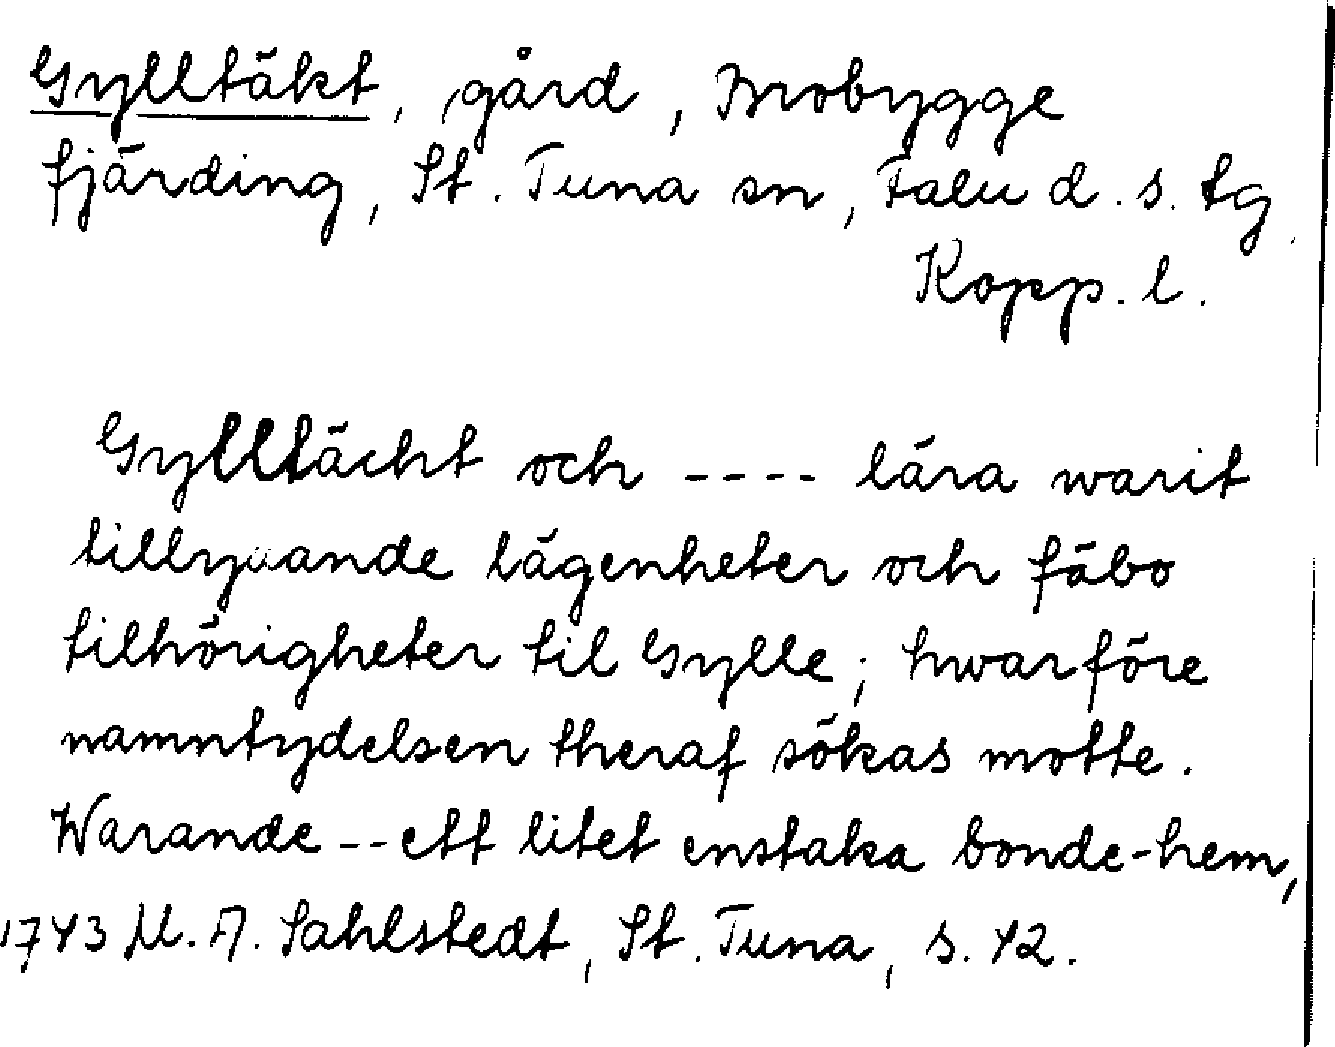 Gylltäkt, gård, Brobygge
fjärding, St. Tuna sn, Falu d. s. tg
Kopp. l.
Gylltächt och ---- lära warit
lillydande lägenheter och fäbo
tilhörigheter til Gylle; hwarföre
namntydelsen theraf sökas motte.
Warande -- ett litet enstaka bonde-hem,
1743 M. A. Sahlstedt, St. Tuna, s. 42.